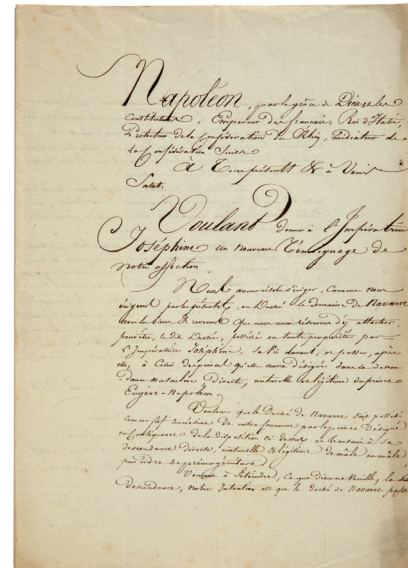 Napoléon, par la grâce de Dieu et les
Constitutions, Empereur des français, Roi d'Italie,
Protecteur de la Confédération du Rhin, Médiateur de
la Confédération Suisse
A Tous présents & à Venir
Salut.
Voulant donner à l'Impératrice
Joséphine un nouveau Témoignage de
notre affection,
Nous avons résolu d'ériger, comme nous
érigeons par les présentes, en Duché le domaine de Navarre
avec les biens & revenus que nous nous réservons d'y attacher,
pour être, le dit Duché, possédé en toute propriété par
l'Impératrice Joséphine, sa Vie durant, et passer, après
elle, à Celui des princes qu'elle aura désigné dans la descen-
dance masculine directe, naturelle et légitime du prince
Eugène-Napoléon
Voulons que le Duché de Navarre soit possédé
comme fief de notre couronne par le prince désigné
en Conséquence de la disposition ci dessus et transmis à sa
descendance directe, naturelle & légitime de mâle en mâle
par ordre de primogéniture.
Venant à s'éteindre, Ce que Dieu ne Veuille, la dite
Descendance, notre Intention est que le duché de Navarre passe